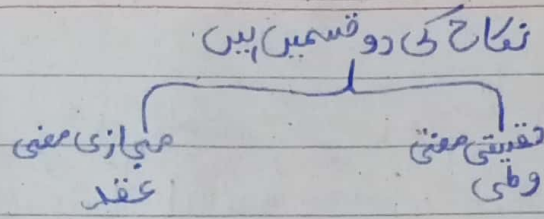 نکاح کی دو قسمیں ہیں.
حقیقی معنی مجازی معنی
وطی عقد